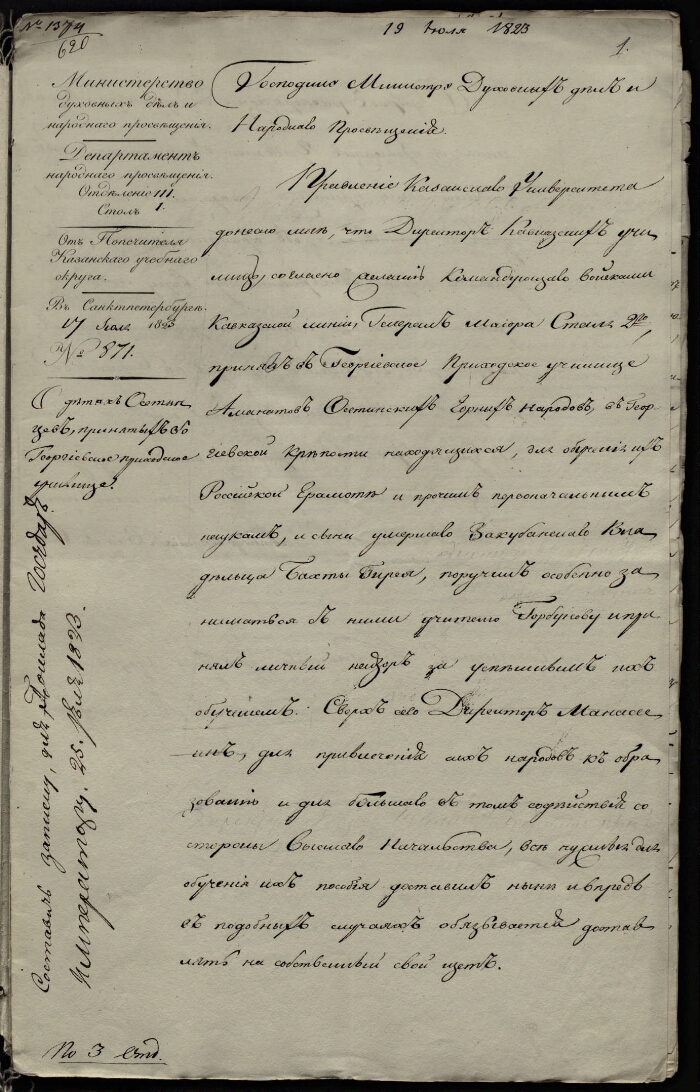 № 1374
620
19 Июля 1823
1.
Министерство
духовныхъ дѣлъ и
народнаго просвѣщенія.
Департаментъ
народнаго просвѣщенія.
Отдѣленіе III.
Столъ 1.
Отъ Попечителя
Казанскаго учебнаго
округа.
Въ Санктпетербургѣ.
17 Июля 1823
№ 871.
О дѣтяхъ Осетин
цевъ, принятыхъ въ
Георгіевское приходское
училище.
Господину Министру Духовныхъ дѣлъ и
Народнаго Просвѣщенія.
Правленіе Казанскаго Университета
донесло мнѣ, что Директоръ Кавказскихъ учи
лищъ, согласно желанію Командующаго войсками
Кавказской линіи, Генералъ Маіора Сталя 2го,
принялъ въ Георгіевское Приходское училище
Аманатовъ Осетинскихъ Горныхъ народовъ, въ Геор
гіевской Крѣпости находящихся, для обученія ихъ
Россійской Грамотѣ и прочимъ первоначальнымъ
наукамъ, и сына умершаго Закубанскаго Вла
дѣльца Бахты Гирея, поручилъ особенно за
ниматься съ ними учителю Горбунову и при
нялъ личный надзоръ за успѣшнымъ ихъ
обученіемъ. Сверхъ сего Директоръ Манассе
инъ, для привлеченія сихъ народовъ къ обра
зованію и для большаго въ томъ содѣйствія со
стороны Высшаго Начальства, всѣ нужныя для
обученія ихъ пособія доставилъ нынѣ и впредь
въ подобныхъ случаяхъ обязывается достав
лять на собственный свой щетъ.
Составить записку, для доклада Государю
Императору. 25. Июля 1823.
По 3 отд.